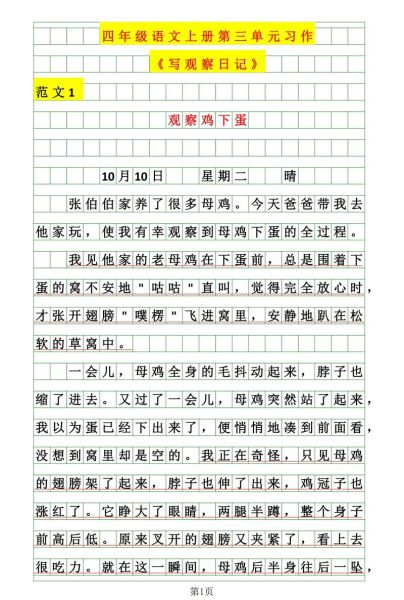 四年级语文上册第三单元习作
《写观察日记》
范文1
观察鸡下蛋
10月10日 星期二 晴
张伯伯家养了很多母鸡。今天爸爸带我去
他家玩，使我有幸观察到母鸡下蛋的全过程。
我见他家的老母鸡在下蛋前，总是围着下
蛋的窝不安地"咕咕"直叫，觉得完全放心时，
才张开翅膀"噗楞"飞进窝里，安静地趴在松
软的草窝中。
一会儿，母鸡全身的毛抖动起来，脖子也
缩了进去。又过了一会儿，母鸡突然站了起来，
我以为蛋已经下出来了，便悄悄地凑到前面看，
没想到窝里却是空的。我正在奇怪，只见母鸡
的翅膀架了起来，脖子也伸了出来，鸡冠子也
涨红了。它睁大了眼睛，两腿半蹲，整个身子
前高后低。原来叉开的翅膀又夹紧了，看上去
很吃力。就在这一瞬间，母鸡后半身往后一坠，
第1页